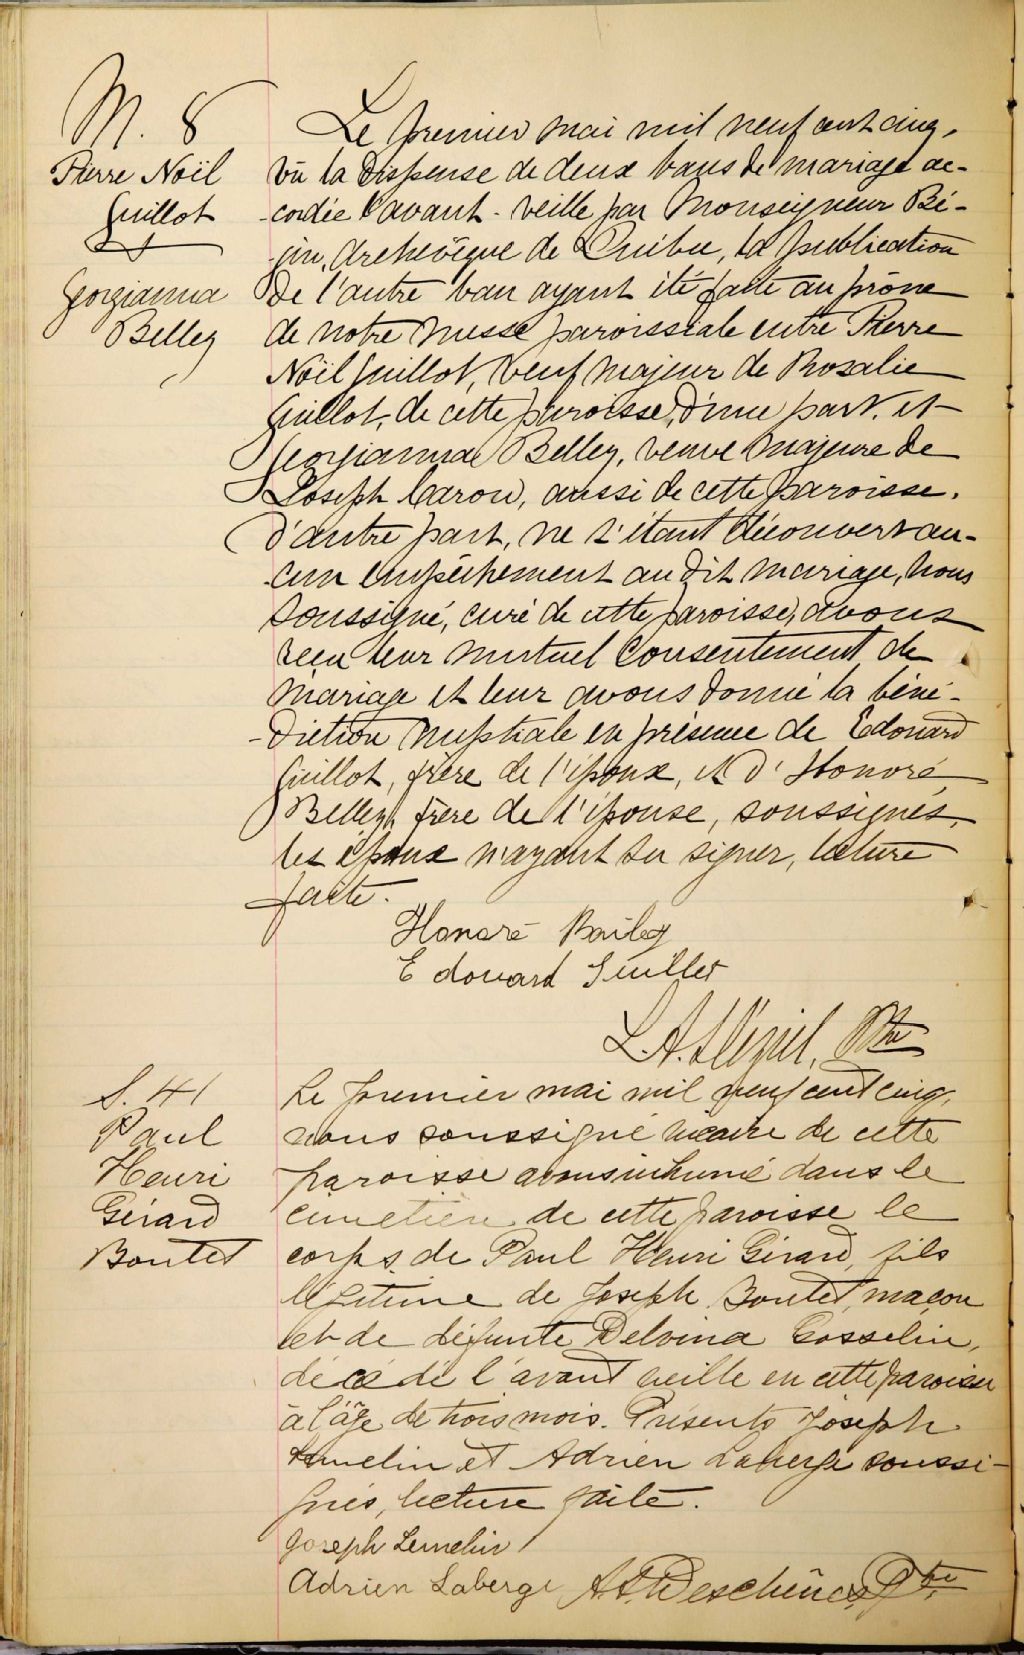 M. 8
Pierre Noël
Guillot
Georgianna
Belley
Le premier mai mil neuf cent cinq,
vu la dispense de deux bans de mariage ac-
-cordée l'avant-veille par Monseigneur Bé-
gin, Archevêque de Québec, la publication
de l'autre ban ayant été faite au prône
de notre messe paroissiale entre Pierre
Noël Guillot, veuf majeur de Rosalie
Guillot, de cette paroisse, d'une part, et
Georgianna Belley, veuve majeure de
Joseph Caron, aussi de cette paroisse,
d'autre part, ne s'étant découvert au-
-cun empêchement au dit mariage, nous
soussigné, curé de cette paroisse, avons
reçu leur mutuel consentement de
mariage et leur avons donné la béné-
-diction nuptiale en présence de Edouard
Guillot, frère de l'époux, et d'Honoré
Belley, frère de l'épouse, soussignés,
les époux n'ayant su signer, lecture
faite.
Honoré Bailey
Edouard Guillot
L. A. Ptre
S. 41
Paul
Henri
Gérard
Boutet
Le premier mai mil neuf cent cinq,
nous soussigné vicaire de cette
paroisse avons inhumé dans le
cimetière de cette paroisse le
corps de Paul Henri Gérard, fils
légitime de Joseph Boutet, maçon
et de défunte Delvina Gosselin,
décédé l'avant veille en cette paroisse
à l'âge de trois mois. Présents Joseph
Lemelin et Adrien Laberge soussi-
gnés, lecture faite.
Joseph Lemelin
Adrien Laberge Deschênes, Ptre